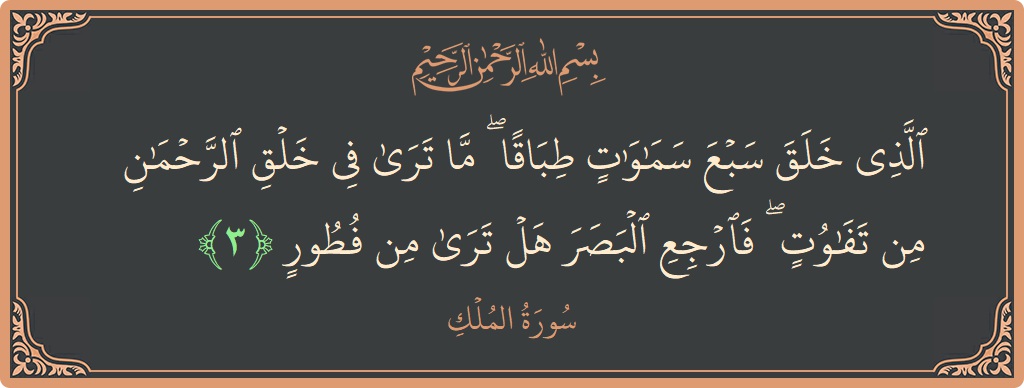 بِسْمِ اللَّهِ الرَّحْمَٰنِ الرَّحِيمِ
ٱلَّذِى خَلَقَ سَبْعَ سَمَٰوَٰتٍ طِبَاقًا ۖ مَّا تَرَىٰ فِى خَلْقِ ٱلرَّحْمَٰنِ
مِن تَفَٰوُتٍ ۖ فَٱرْجِعِ ٱلْبَصَرَ هَلْ تَرَىٰ مِن فُطُورٍ ﴿٣﴾
سُورَةُ المُلْكِ